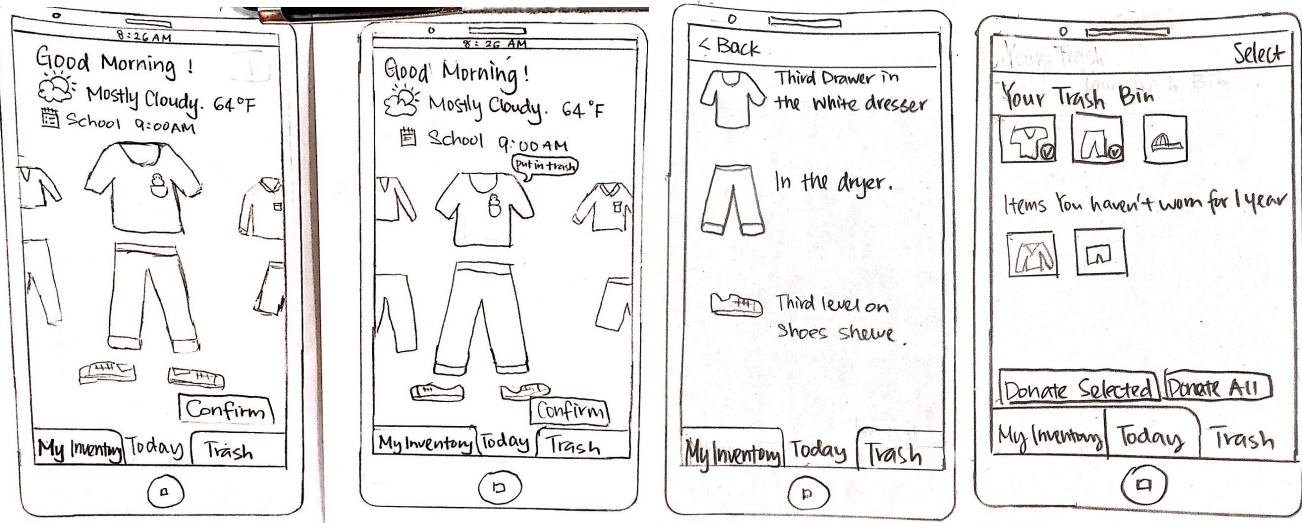 8:26AM
Good Morning !
Mostly Cloudy. 64°F
School 9:00AM
Confirm
My Inventory Today Trash
8:26 AM
Good Morning!
Mostly Cloudy. 64°F
School 9:00AM
put in trash
Confirm
My Inventory Today Trash
< Back
Third Drawer in
the white dresser
In the dryer.
Third level on
shoes shelve.
My Inventory Today Trash
Your Trash
Select
Your Trash Bin
Items You haven't worn for 1 year
Donate Selected Donate All
My Inventory Today Trash